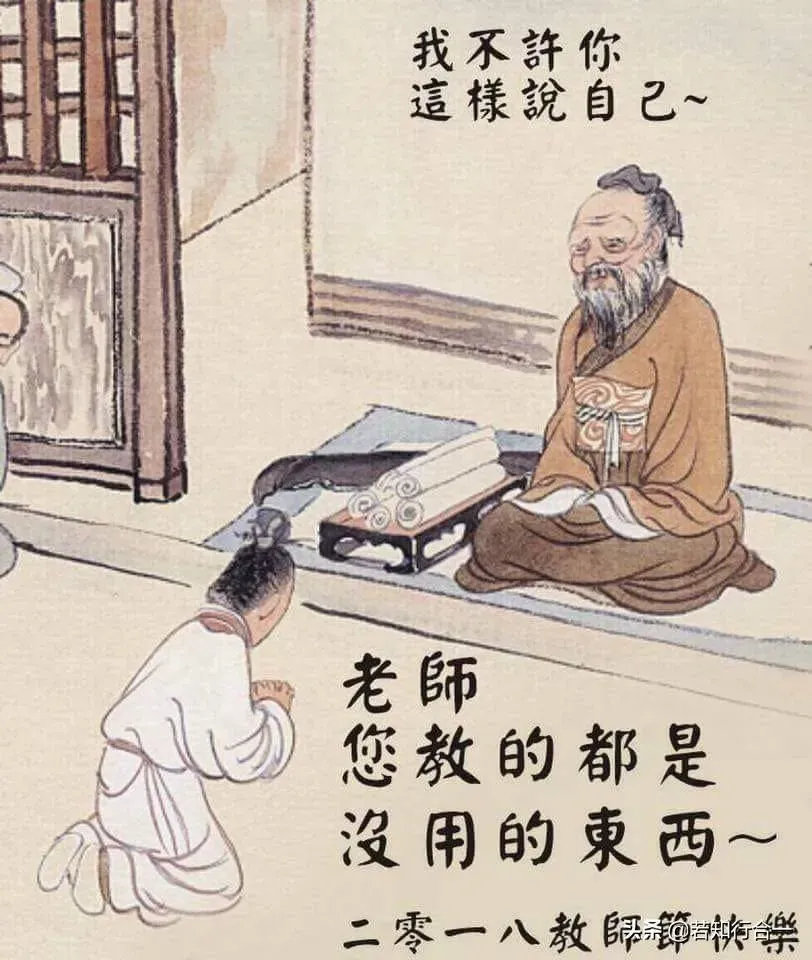 我不許你
這樣說自己~
老師
您教的都是
沒用的東西~
二零一八教師節快樂
头条@若知行合一